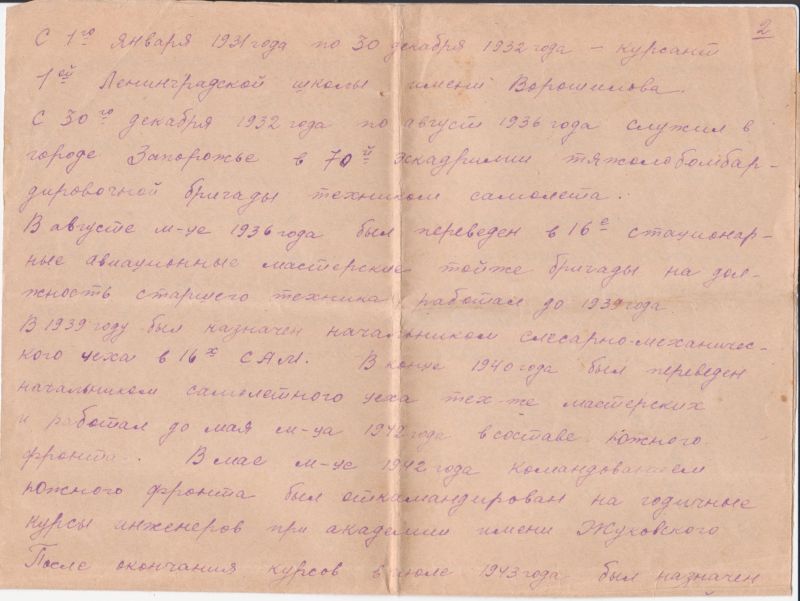 2
С 1го января 1931 года по 30 декабря 1932 года – курсант
1ей Ленинградской школы имени Ворошилова.
С 30го декабря 1932 года по август 1936 года служил в
городе Запорожье в 70й эскадрилии тяжолобомбар-
дировочной бригады техником самолета.
В августе м-це 1936 года был переведен в 16е стационар-
ные авиационные мастерские тойже бригады на дол-
жность старшего техника, работал до 1939 года
В 1939 году был назначен начальником слесарно-механичес-
кого цеха в 16х САМ. В конце 1940 года был переведен
начальником самолетного цеха тех-же мастерских
и работал до мая м-ца 1942 года в составе Южного
фронта. В мае м-це 1942 года командованием
Южного фронта был откамандирован на годичные
курсы инженеров при академии имени Жуковского
После окончания курсов в июле 1943 года был назначен